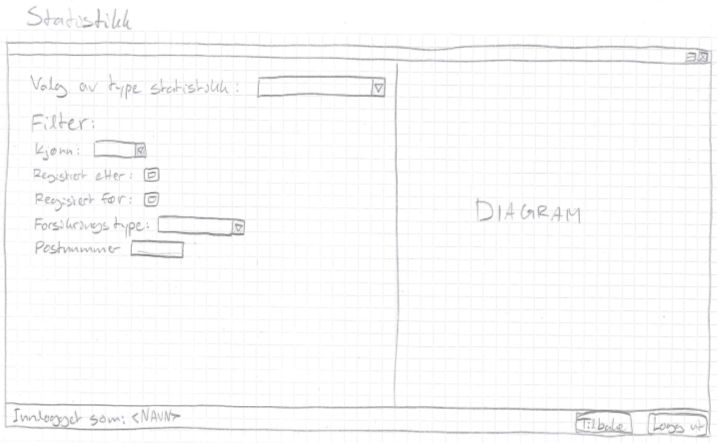 Statistikk
Valg av type statistikk:
Filter:
Kjønn:
Registrert etter:
Registrert før:
Forsikringstype:
Postnummer
DIAGRAM
Innlogget som: <NAVN>
Tilbake
Logg ut